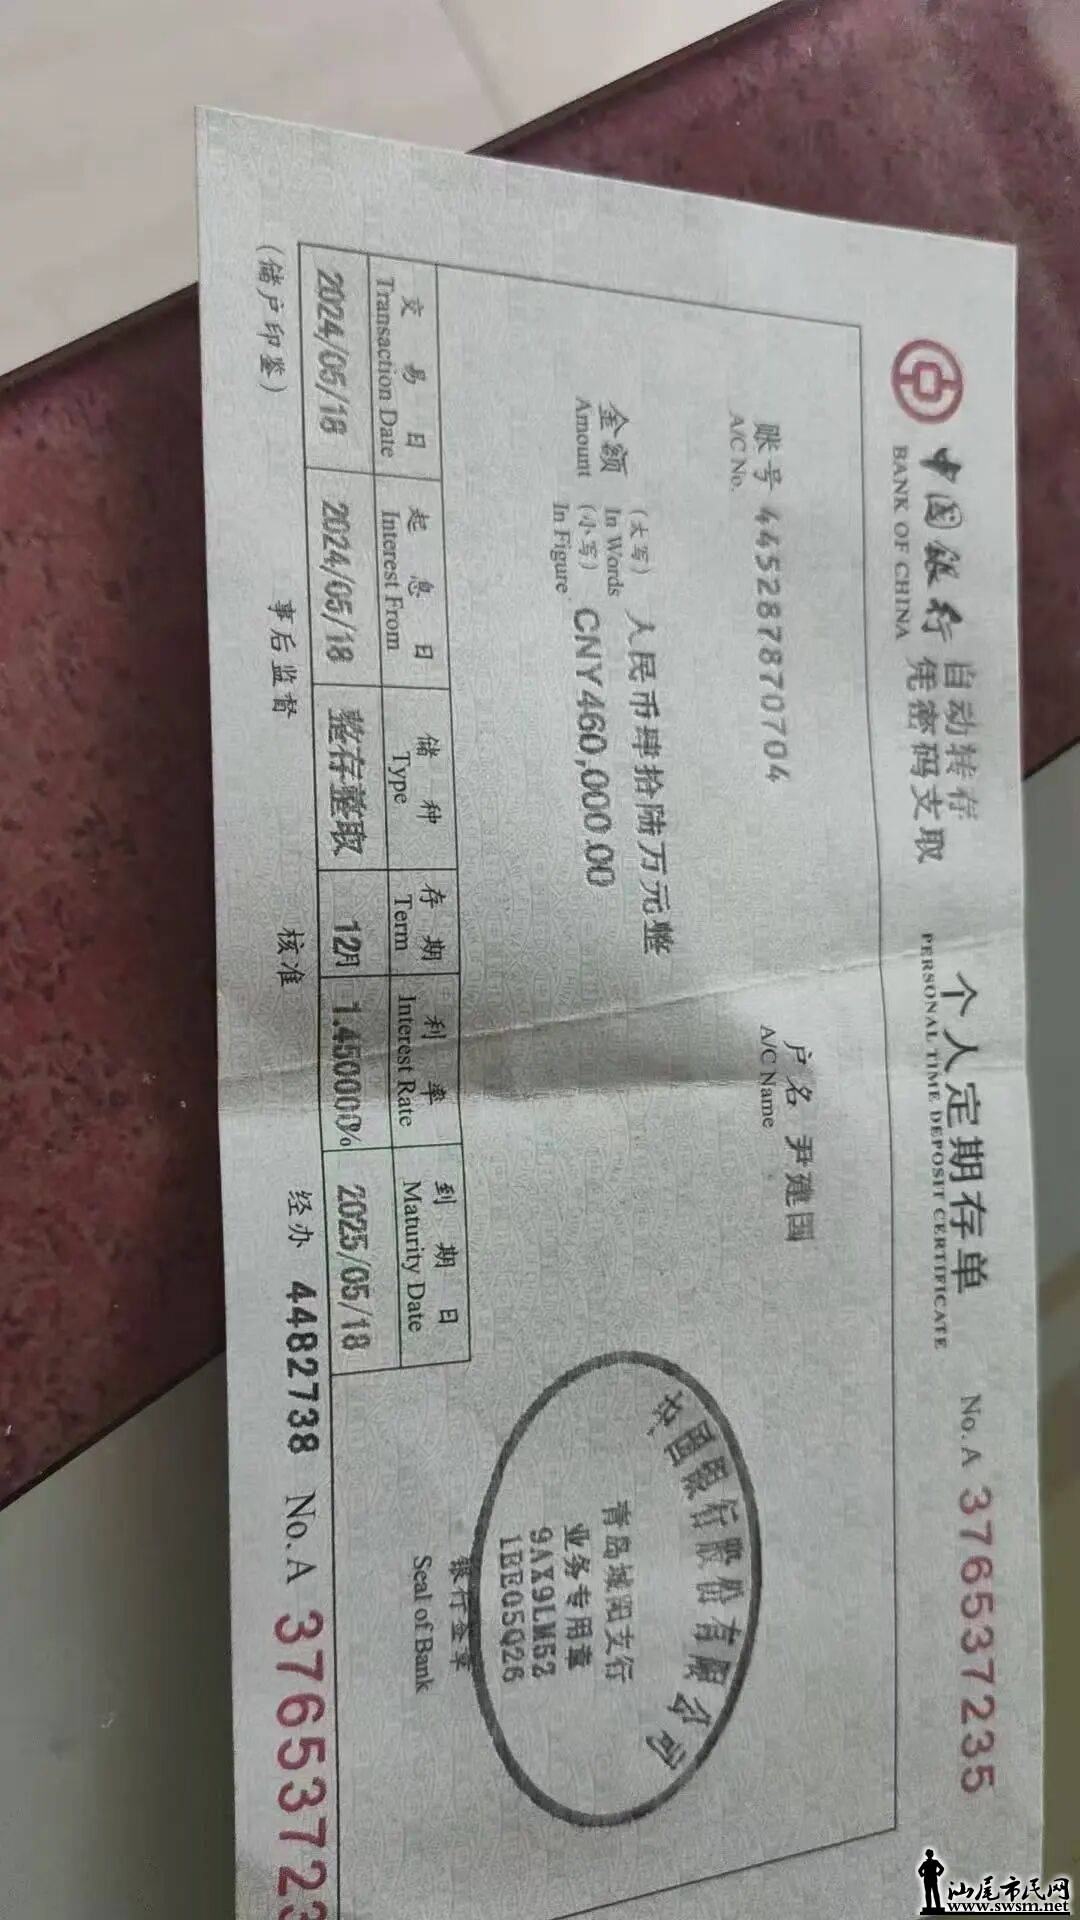 中国银行
BANK OF CHINA
自动转存
凭密码支取
个人定期存单
PERSONAL TIME DEPOSIT CERTIFICATE
No. A 376537235
账号 445287870704
A/C No.
户名 尹建国
A/C Name
金额
Amount
(大写) 人民币肆拾陆万元整
In Words
(小写) CNY460,000.00
In Figure
交易日 起息日 储种 存期 利率 到期日
Transaction Date Interest From Type Term Interest Rate Maturity Date
2024/05/18 2024/05/18 整存整取 12月 1.450000% 2025/05/18
中国银行股份有限公司
青岛城阳支行
业务专用章
9AX9LM52
1BE05Q26
银行签章
Seal of Bank
(储户印鉴) 事后监督 核准 经办 4482738 No. A 37653723
汕尾市民网
www.swsm.net